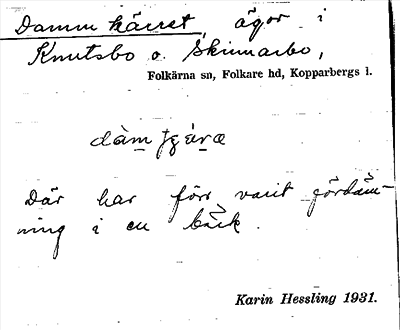 Dammkärret, ägor i
Knutsbo o. Skinnarbo,
Folkärna sn, Folkare hd, Kopparbergs l.
Där har förr varit fördäm-
ning i en bäck.
Karin Hessling 1931.